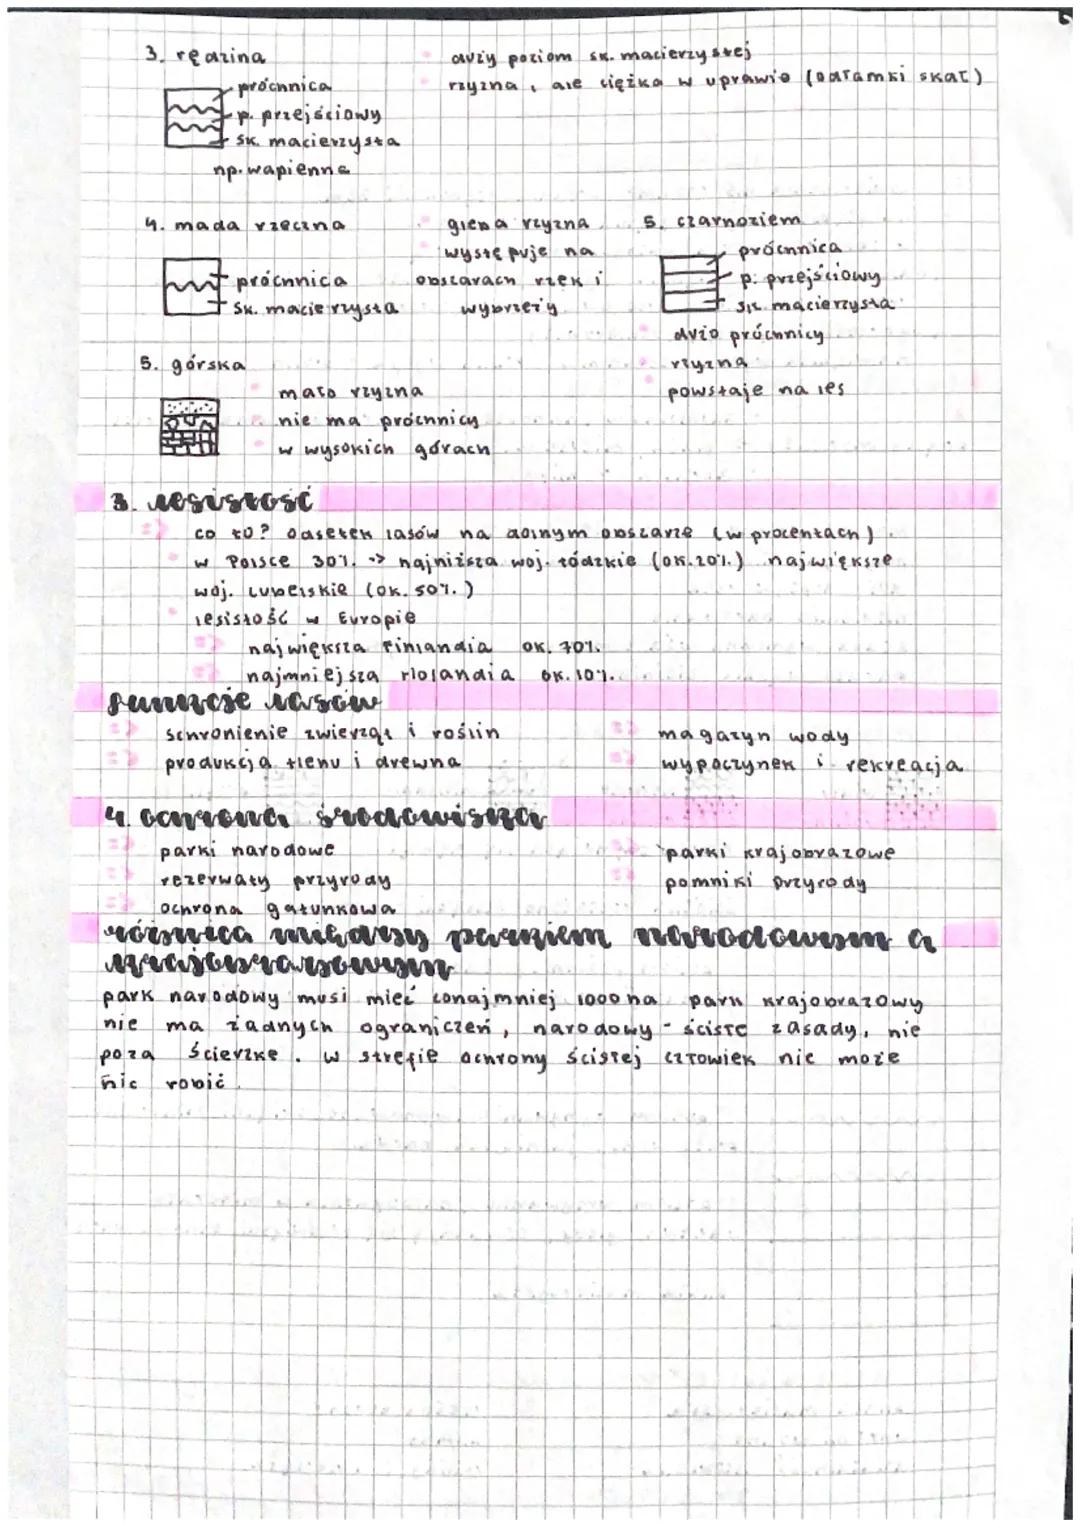 3. rędzina
próchnica
p. przejściowy
sk. macierzysta
np. wapienne
duży poziom sk. macierzystej
żyzna, ale ciężka w uprawie (odłamki skał)
4. mada rzeczna
próchnica
sk. macierzysta
gleba żyzna
występuje na
obszarach rzek i
wybrzeży
5. czarnoziem
próchnica
p. przejściowy
sk. macierzysta
dużo próchnicy
żyzna
powstaje na les
5. górska
mało żyzna
nie ma próchnicy
w wysokich górach
3. lesistość
=> co to? odsetek lasów na danym obszarze (w procentach)
w Polsce 30% -> najniższa woj. łódzkie (ok. 20%.) największe
woj. lubelskie (ok. 50%.)
lesistość w Europie
=> największa Finlandia ok. 70%.
=> najmniejsza Holandia ok. 10%.
funkcje lasów
=> schronienie zwierząt i roślin
=> produkcja tlenu i drewna
=> magazyn wody
=> wypoczynek i rekreacja
4. ochrona środowiska
=> parki narodowe
=> rezerwaty przyrody
=> ochrona gatunkowa
=> parki krajobrazowe
=> pomniki przyrody
różnica między parkiem narodowym a
krajobrazowym
park narodowy musi mieć conajmniej 1000 ha park krajobrazowy
nie ma żadnych ograniczeń, narodowy - ścisłe zasady, nie
poza ścierzkę. w strefie ochrony ścisłej człowiek nie może
nic robić.